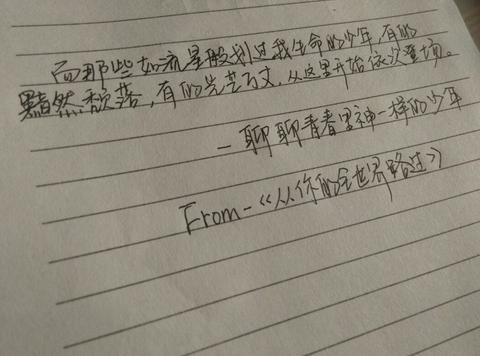 而那些如流星般划过我生命的少年,有的
黯然颓落,有的光芒万丈,从这里开始依次登场。
-聊聊青春里神一样的少年
From-《从你的全世界路过》